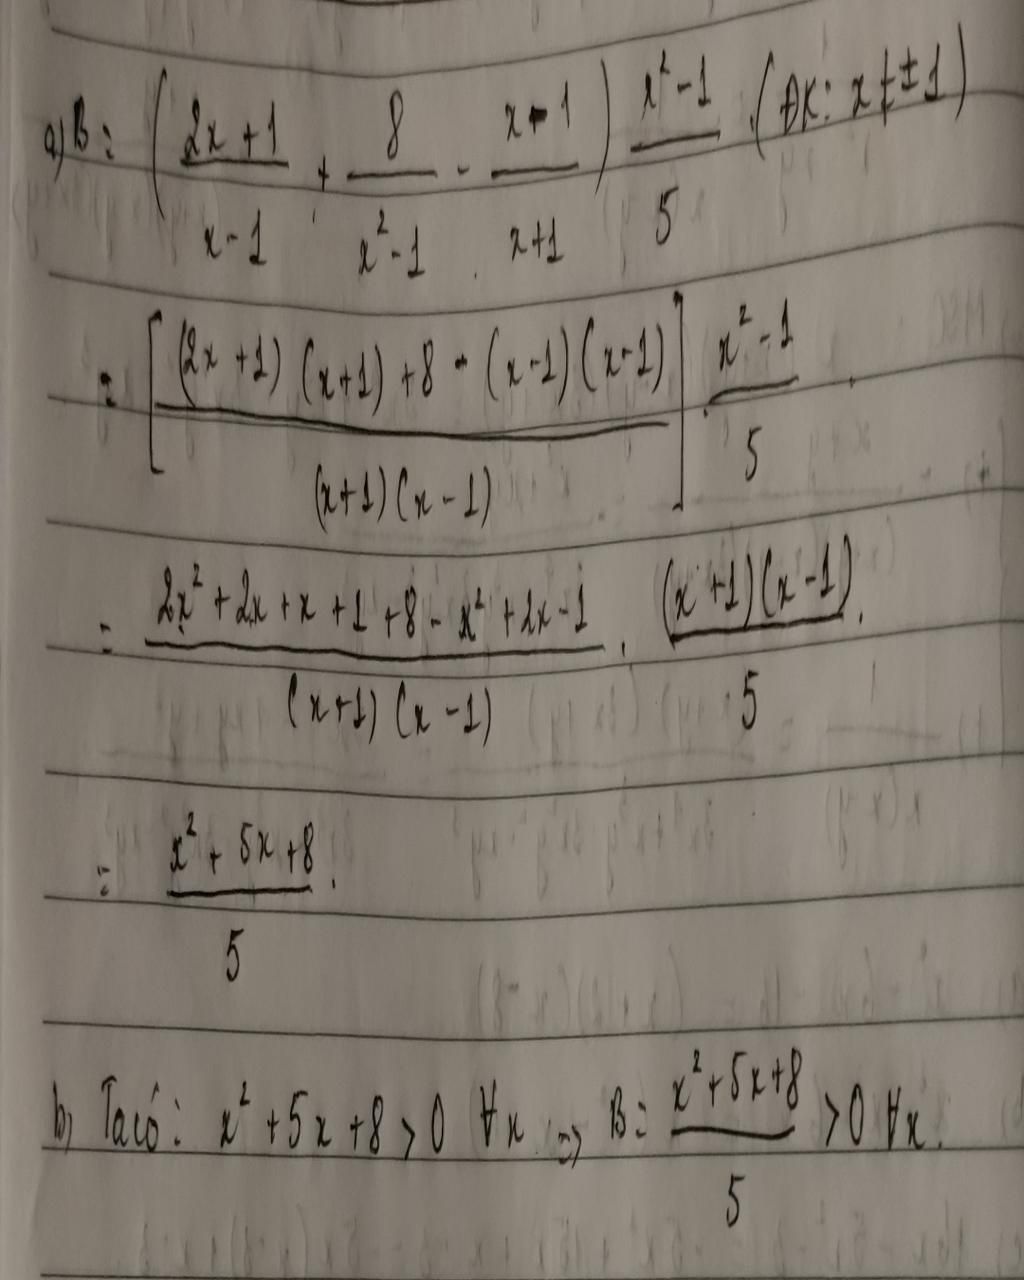 a) B = ( (2x + 1)/(x - 1) + 8/(x² - 1) - (x - 1)/(x + 1) ) (x² - 1)/5 . (ĐK: x ≠ ± 1)
= [ ((2x + 1) (x + 1) + 8 - (x - 1) (x - 1))/((x + 1) (x - 1)) ] . (x² - 1)/5 .
= (2x² + 2x + x + 1 + 8 - x² + 2x - 1)/((x + 1) (x - 1)) . ((x + 1) (x - 1))/5 .
= (x² + 5x + 8)/5 .
b) Ta có: x² + 5x + 8 > 0 ∀x => B = (x² + 5x + 8)/5 > 0 ∀x.